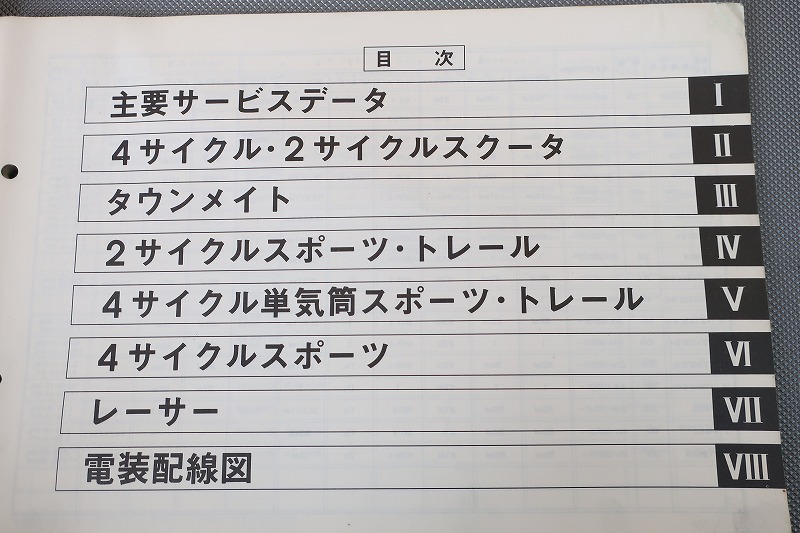 目 次
主要サービスデータ I
4サイクル・2サイクルスクータ II
タウンメイト III
2サイクルスポーツ・トレール IV
4サイクル単気筒スポーツ・トレール V
4サイクルスポーツ VI
レーサー VII
電装配線図 VIII